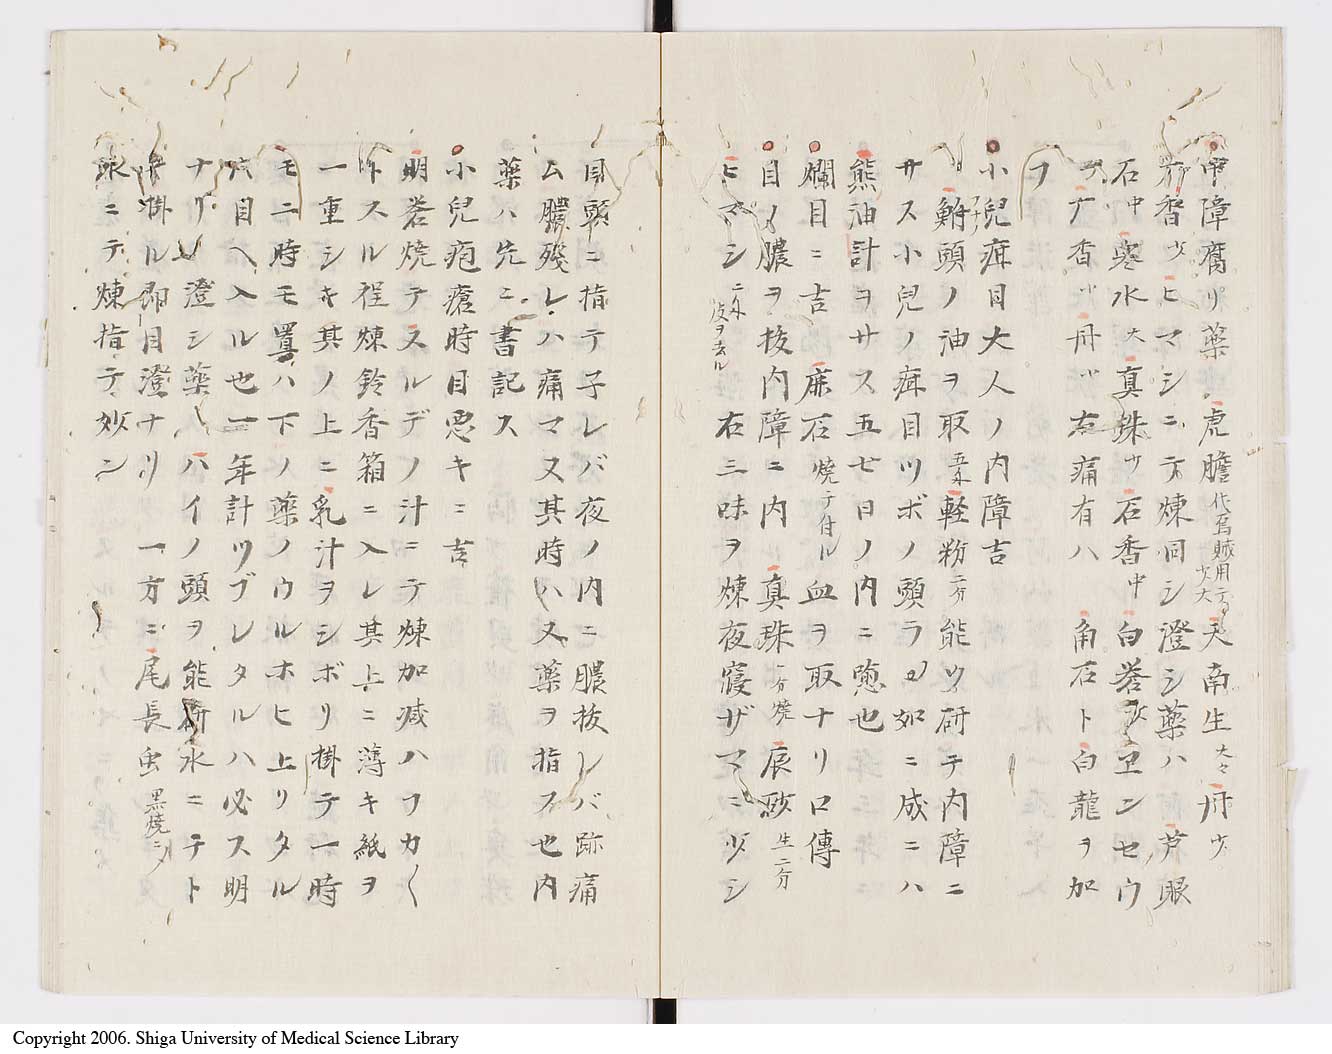 中障腐リ薬 虎膽 代烏賊用テ 天南生 大々 丹 少
石中 寒水 大 真銖 少 石香 中 白砦
丁香 丹 右痛有ハ 角石ト白龍ヲ加
ヲ
小兒疳目大人ノ内障吉
鮒頭ノ油ヲ取 軽粉 二分 能ツ研テ内障ニ
サス小兒ノ疳目ツボノ頭ラノ如ニ成ニハ
熊油計ヲサス五七日ノ内ニ愈也
爛目ニ吉 麻石 焼テ付ル 血ヲ取ナリ口傳
目ノ膿ヲ抜内障ニ内 真珠 一分焼 辰砂 生二分
ヒマシ 皮ヲ去ル 右三味ヲ煉夜寝ザマニ少シ
目頭ニ指テ子レバ夜ノ内ニ膿抜レバ跡痛
ム膿残レハ痛マ又其時ハ又薬ヲ指ス也内
薬ハ先ニ書記ス
小兒疱瘡時目悪キニ吉
明砦焼テスルデノ汁ニテ煉加减ハフカ〱
トスル程煉鈴香箱ニ入レ其上ニ薄キ紙ヲ
一重シキ其ノ上ニ乳汁ヲシボリ掛テ一時
モ二時モ置ハ下ノ薬ノウルホヒ上リタル
目ヘ入ル也一年計ツブレタルハ必ス明
ナリ 澄シ薬ハハイノ頭ヲ能研水ニテト
掛ル即目澄ナリ 一方ニ尾長虫 黒焼ニ〆
水ニテ煉指テ妙ン
Copyright 2006. Shiga University of Medical Science Library